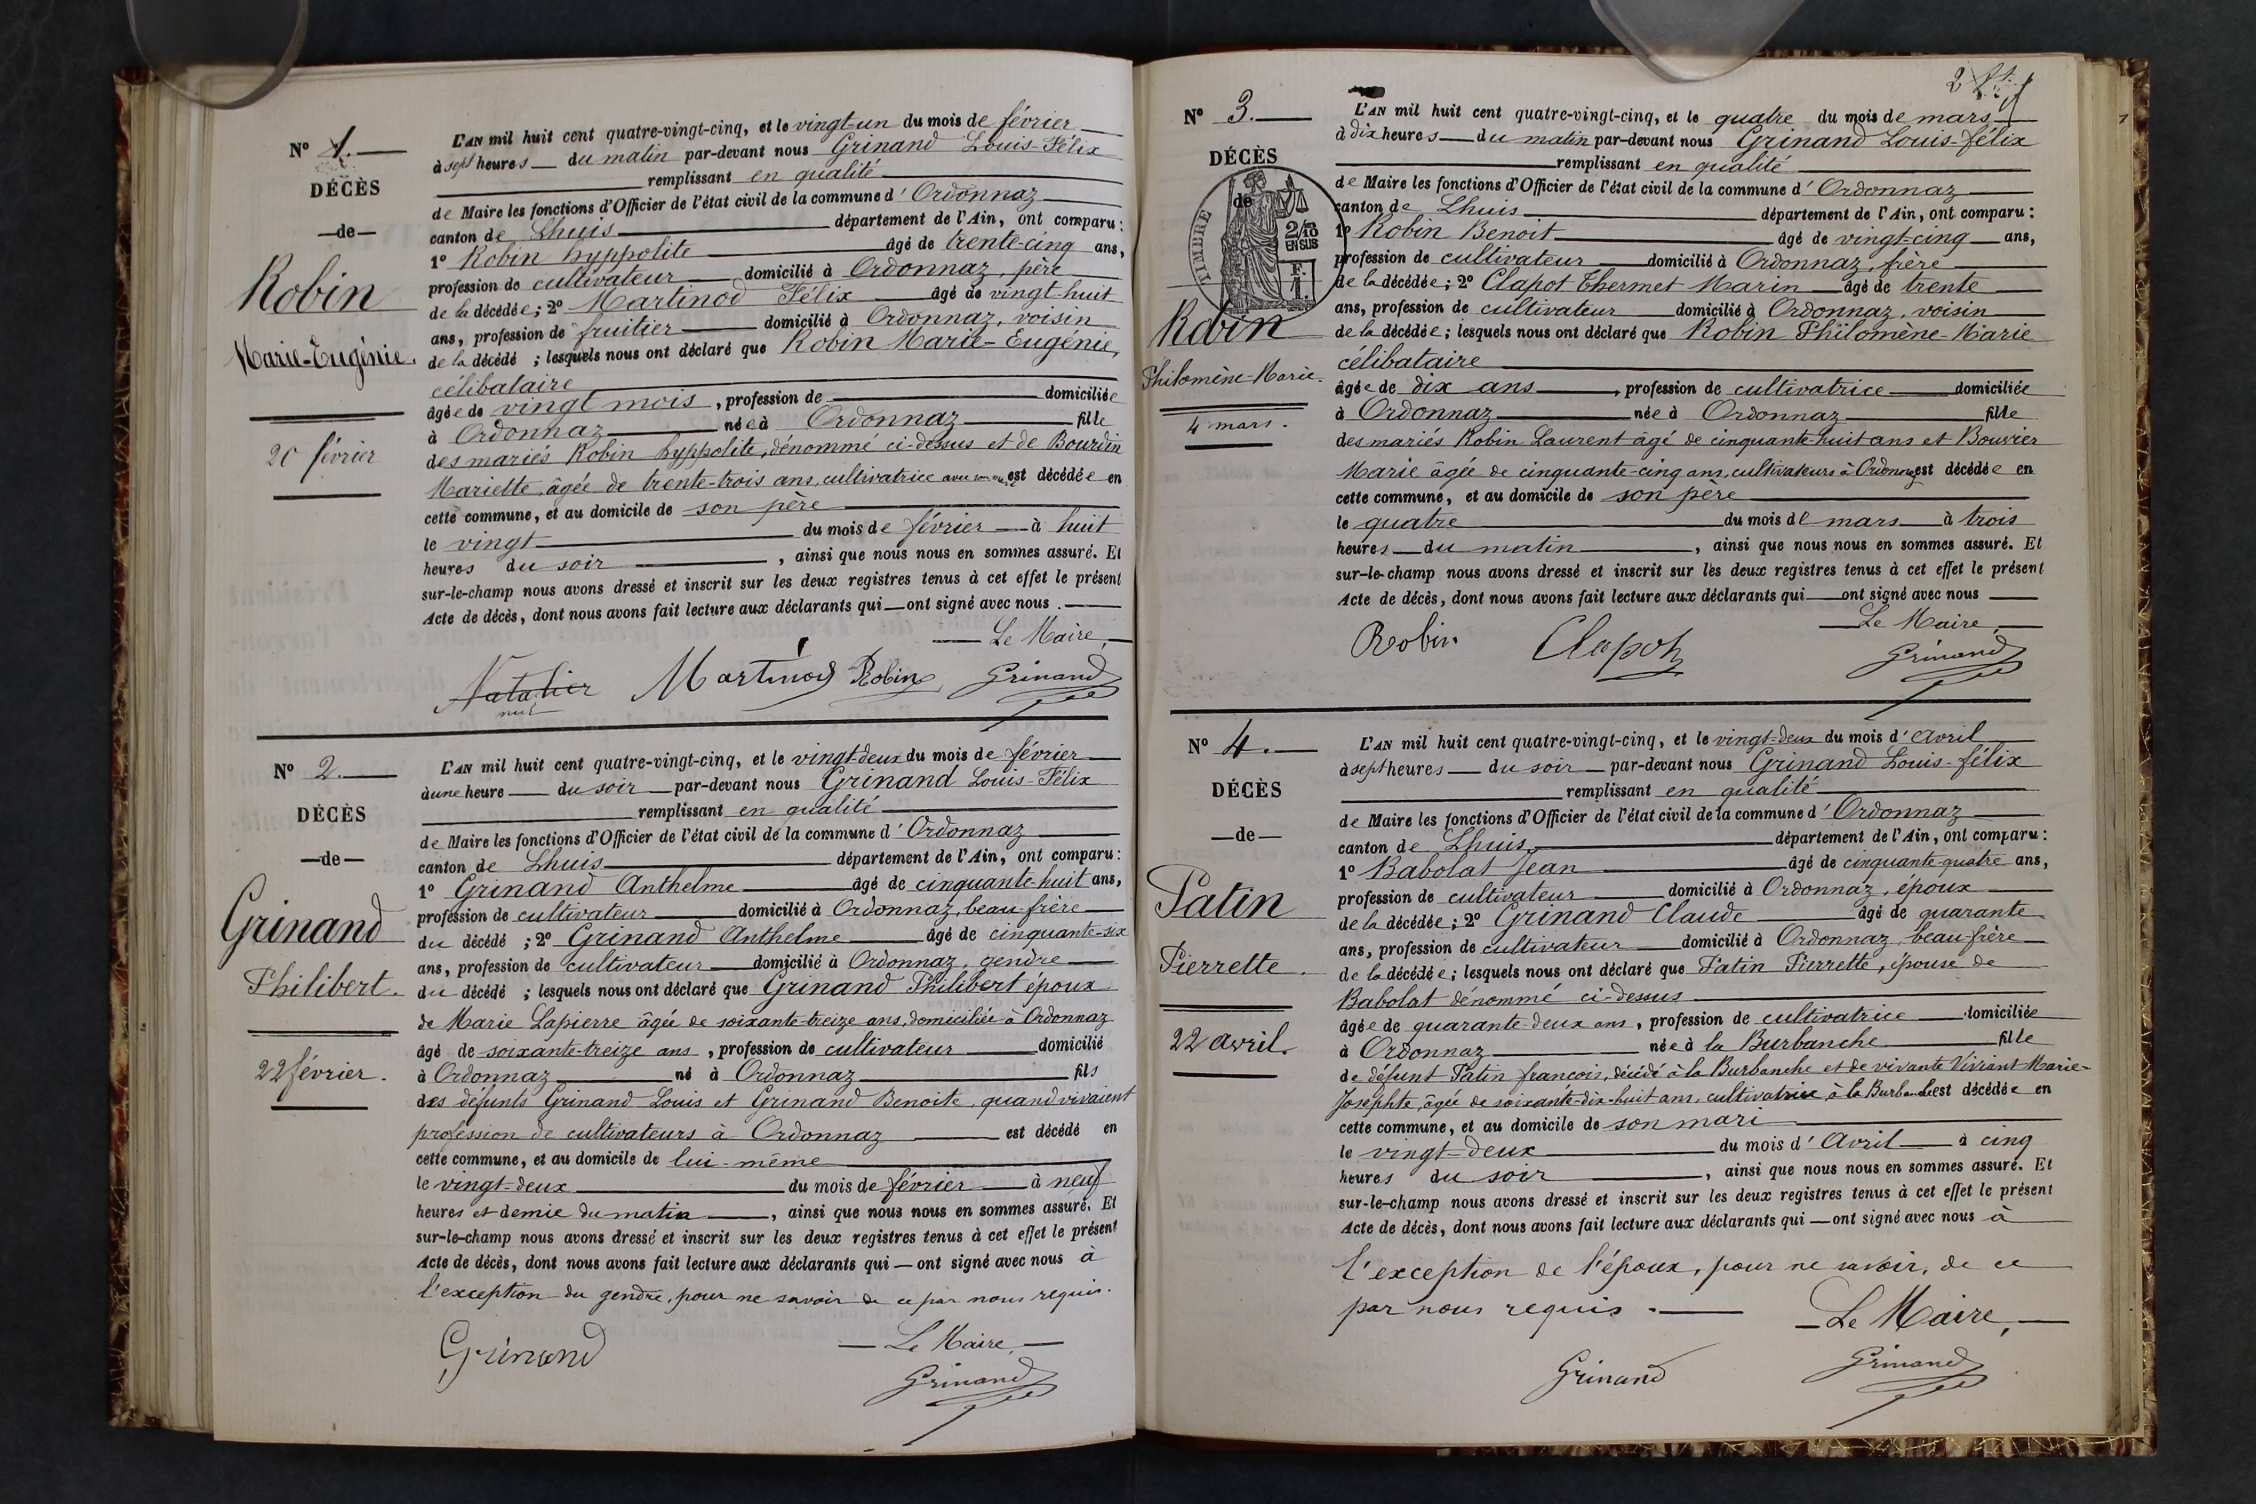 N° 1.
DÉCÈS
—de—
Robin
Marie-Eugénie.
20 février
L'AN mil huit cent quatre-vingt-cinq, et le vingt-un du mois de février
à sept heures du matin par-devant nous Grinand Louis-Félix
remplissant en qualité
de Maire les fonctions d'Officier de l'état civil de la commune d'Ordonnaz
canton de Lhuis département de l'Ain, ont comparu :
1° Robin hyppolite âgé de trente-cinq ans,
profession de cultivateur domicilié à Ordonnaz, père
de la décédée ; 2° Martinod Félix âgé de vingt-huit
ans, profession de fruitier domicilié à Ordonnaz, voisin
de la décédé ; lesquels nous ont déclaré que Robin Marie-Eugénie,
célibataire
âgée de vingt mois, profession de domiciliée
à Ordonnaz née à Ordonnaz fille
des mariés Robin hyppolite, dénommé ci-dessus et de Bourdin
Mariette, âgée de trente-trois ans, cultivatrice avec est décédée en
cette commune, et au domicile de son père
le vingt du mois de février à huit
heures du soir, ainsi que nous nous en sommes assuré. Et
sur-le-champ nous avons dressé et inscrit sur les deux registres tenus à cet effet le présent
Acte de décès, dont nous avons fait lecture aux déclarants qui — ont signé avec nous.
Le Maire,
Natalier Martinod Robin Grinand
nul
N° 2.
DÉCÈS
—de—
Grinand
Philibert.
22 février.
L'AN mil huit cent quatre-vingt-cinq, et le vingt-deux du mois de février
à une heure du soir par-devant nous Grinand Louis-Félix
remplissant en qualité
de Maire les fonctions d'Officier de l'état civil de la commune d'Ordonnaz
canton de Lhuis département de l'Ain, ont comparu :
1° Grinand Anthelme âgé de cinquante-huit ans,
profession de cultivateur domicilié à Ordonnaz, beau-frère
du décédé ; 2° Grinand Anthelme âgé de cinquante-six
ans, profession de cultivateur domicilié à Ordonnaz, gendre
du décédé ; lesquels nous ont déclaré que Grinand Philibert époux
de Marie Lapierre âgée de soixante-treize ans, domiciliée à Ordonnaz
âgé de soixante-treize ans, profession de cultivateur domicilié
à Ordonnaz né à Ordonnaz fils
des défunts Grinand Louis et Grinand Benoite, quand vivaient
profession de cultivateurs à Ordonnaz est décédé en
cette commune, et au domicile de lui-même
le vingt-deux du mois de février à neuf
heures et demie du matin, ainsi que nous nous en sommes assuré. Et
sur-le-champ nous avons dressé et inscrit sur les deux registres tenus à cet effet le présent
Acte de décès, dont nous avons fait lecture aux déclarants qui — ont signé avec nous à
l'exception du gendre, pour ne savoir de ce par nous requis.
Le Maire,
Grinand Grinand
2
N° 3.
DÉCÈS
de
TIMBRE
2/10
EN SUS
F.
1.
Robin
Philomène-Marie.
4 mars.
L'AN mil huit cent quatre-vingt-cinq, et le quatre du mois de mars
à dix heures du matin par-devant nous Grinand Louis-félix
remplissant en qualité
de Maire les fonctions d'Officier de l'état civil de la commune d'Ordonnaz
canton de Lhuis département de l'Ain, ont comparu :
1° Robin Benoit âgé de vingt-cinq ans,
profession de cultivateur domicilié à Ordonnaz, frère
de la décédée ; 2° Clapot Thermet Marin âgé de trente
ans, profession de cultivateur domicilié à Ordonnaz, voisin
de la décédée ; lesquels nous ont déclaré que Robin Philomène-Marie
célibataire
âgée de dix ans, profession de cultivatrice domiciliée
à Ordonnaz née à Ordonnaz fille
des mariés Robin Laurent âgé de cinquante-huit ans et Bouvier
Marie âgée de cinquante-cinq ans, cultivateurs à Ordonnaz est décédée en
cette commune, et au domicile de son père
le quatre du mois de mars à trois
heures du matin, ainsi que nous nous en sommes assuré. Et
sur-le-champ nous avons dressé et inscrit sur les deux registres tenus à cet effet le présent
Acte de décès, dont nous avons fait lecture aux déclarants qui — ont signé avec nous
Le Maire,
Robin Clapot Grinand
N° 4.
DÉCÈS
—de—
Patin
Pierrette.
22 avril.
L'AN mil huit cent quatre-vingt-cinq, et le vingt-deux du mois d'avril
à sept heures du soir par-devant nous Grinand Louis-félix
remplissant en qualité
de Maire les fonctions d'Officier de l'état civil de la commune d'Ordonnaz
canton de Lhuis département de l'Ain, ont comparu :
1° Babolat Jean âgé de cinquante-quatre ans,
profession de cultivateur domicilié à Ordonnaz, époux
de la décédée ; 2° Grinand Claude âgé de quarante
ans, profession de cultivateur domicilié à Ordonnaz, beau-frère
de la décédée ; lesquels nous ont déclaré que Patin Pierrette, épouse de
Babolat dénommé ci-dessus
âgée de quarante-deux ans, profession de cultivatrice domiciliée
à Ordonnaz née à la Burbanche fille
de défunt Patin françois, décédé à la Burbanche et de vivante Vivian Marie-
Josephte, âgée de soixante-dix-huit ans, cultivatrice à la Burbanche est décédée en
cette commune, et au domicile de son mari
le vingt-deux du mois d'avril à cinq
heures du soir, ainsi que nous nous en sommes assuré. Et
sur-le-champ nous avons dressé et inscrit sur les deux registres tenus à cet effet le présent
Acte de décès, dont nous avons fait lecture aux déclarants qui — ont signé avec nous à
l'exception de l'époux, pour ne savoir, de ce
par nous requis.
Le Maire,
Grinand Grinand